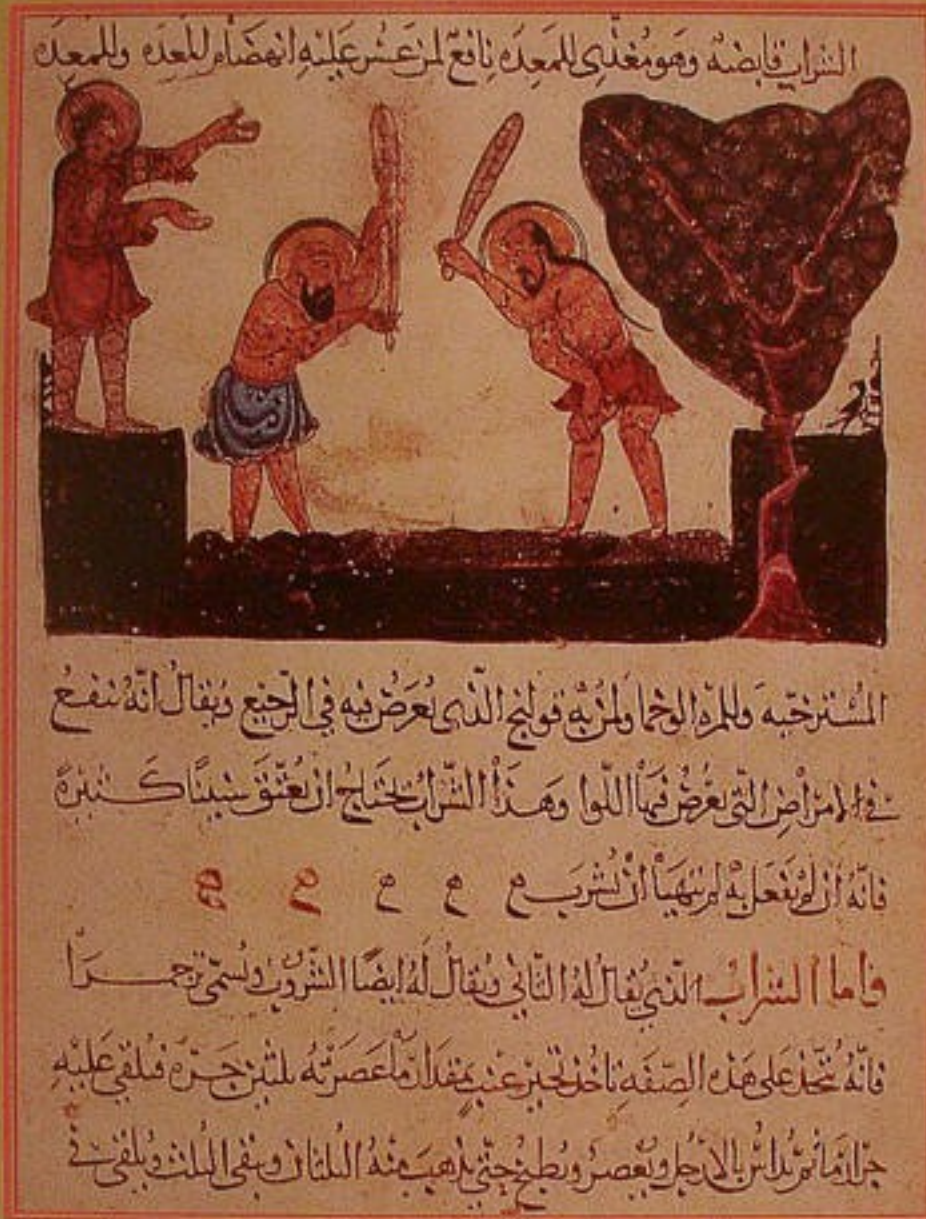 الشراب قابضه وهو مغذى للمعده نافع لمن عسر عليه انهضام للمعده وللمعده
المسترخيه وللمراه الوحما ولمن به قولنج الذى يعرض فيه في الرجيع ويقال انه ينفع
في الامراض التي يعرض فيها اللوا وهذا الشراب يحتاج ان يعتق سنينا كثيره
فانه ان لم يفعل به لم يتهيا ان يشرب
واما الشراب الذي يقال له الثاني ويقال له ايضا الشروب ويسمى
فانه يتخذ على هذه الصفه ناخذ عنب بمقدار ما عصرته ثلثين جره فيلقى عليه
ثم يداس بالارجل ويعصر ويطبخ حتى يذهب منه الثلثان ويبقى الثلث ويلقى في